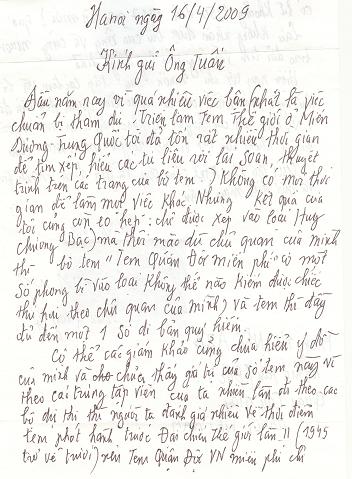 Hanoi ngày 16/4/2009
Kính gửi Ông Tuấn
Đầu năm nay vì quá nhiều việc bận (nhất là việc
chuẩn bị tham dự "Triển lãm Tem Thế giới ở
Dương - Trung Quốc tôi đã tốn rất nhiều thời gian
để tìm xếp, hiểu các tư liệu rồi lại soạn, thuyết
trình trên các trang của bộ tem) không có mọi thời
gian để làm mọi việc khác. Nhưng kết quả của
tôi cũng con eo hẹp: chỉ được xếp vào loại Huy
chương Bạc) mà thôi mặc dù chủ quan của mình
thì bộ tem "Tem Quân Đội miễn phí" có một
số phong bì vào loại không thể nào kiếm được chiếc
thứ hai theo chủ quan của mình) và tem thì đầy
đủ đến một số di bản quý hiếm.
Có thể các giám khảo cũng chưa hiểu ý đồ
của mình và chưa thấy giá trị của số tem này vì
theo các trung tập viên của ta nhiều lần đi theo các
bộ dự thi thì người ta đánh giá nhiều về thời điểm
tem phát hành trước Đại chiến thế giới lần II (1945
trở về trước) nên Tem Quân Đội VN miễn phí chỉ